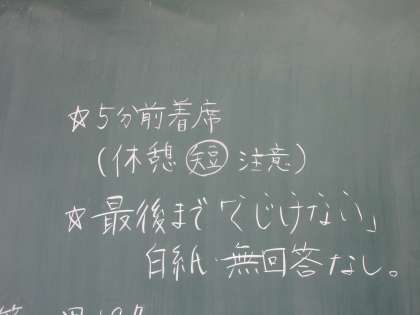 ☆5分前着席
(休憩 短 注意)
☆最後まで「くじけない」
白紙・無回答なし。